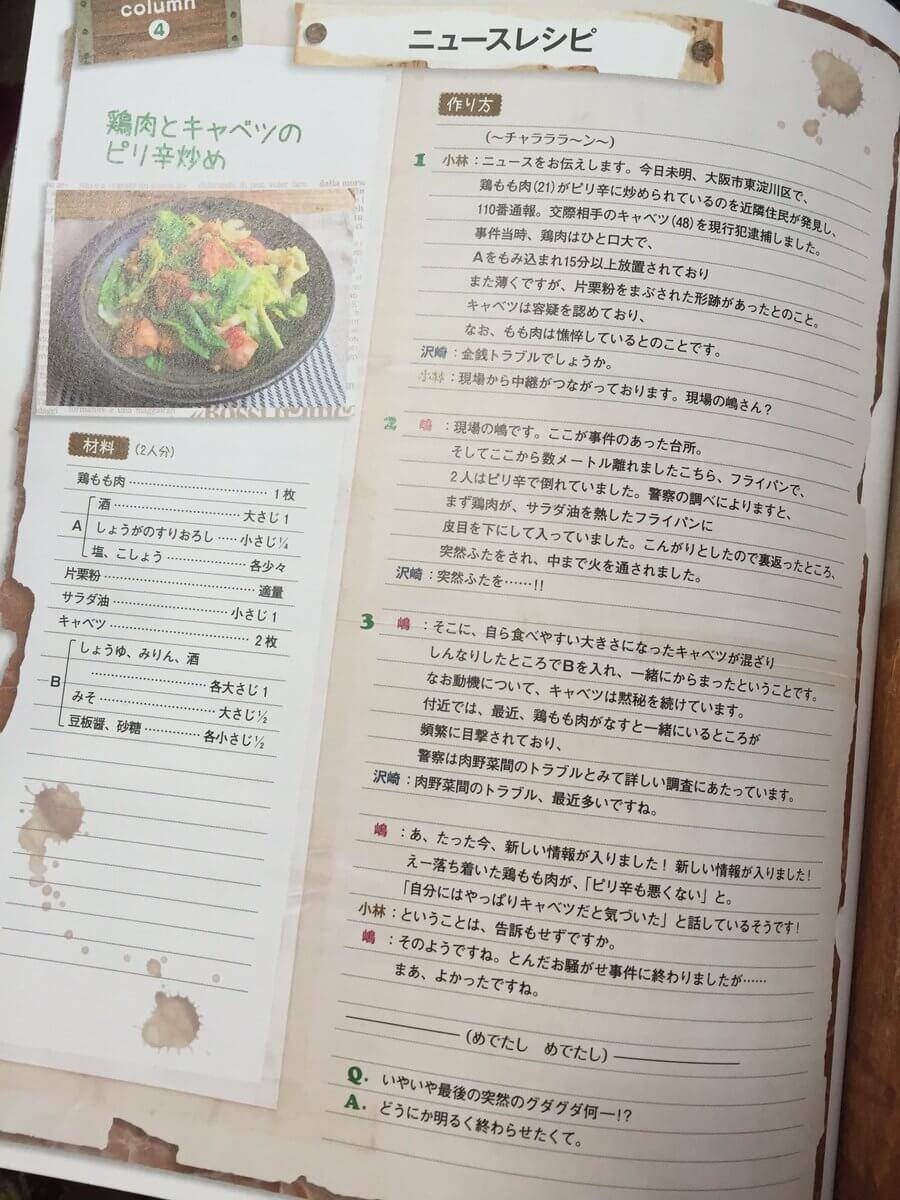 column
4
ニュースレシピ
鶏肉とキャベツの
ピリ辛炒め
材料 (2人分)
鶏もも肉 1枚
A
酒 大さじ1
しょうがのすりおろし 小さじ¼
塩、こしょう 各少々
片栗粉 適量
サラダ油 小さじ1
キャベツ 2枚
B
しょうゆ、みりん、酒
各大さじ1
みそ 大さじ½
豆板醤、砂糖 各小さじ½
作り方
(〜チャラララ〜ン〜)
1 小林:ニュースをお伝えします。今日未明、大阪市東淀川区で、
鶏もも肉(21)がピリ辛に炒められているのを近隣住民が発見し、
110番通報。交際相手のキャベツ(48)を現行犯逮捕しました。
事件当時、鶏肉はひと口大で、
Aをもみ込まれ15分以上放置されており
また薄くですが、片栗粉をまぶされた形跡があったとのこと。
キャベツは容疑を認めており、
なお、もも肉は憔悴しているとのことです。
沢崎:金銭トラブルでしょうか。
小林:現場から中継がつながっております。現場の嶋さん?
2 嶋:現場の嶋です。ここが事件のあった台所。
そしてここから数メートル離れましたこちら、フライパンで、
2人はピリ辛で倒れていました。警察の調べによりますと、
まず鶏肉が、サラダ油を熱したフライパンに
皮目を下にして入っていました。こんがりとしたので裏返ったところ、
突然ふたをされ、中まで火を通されました。
沢崎:突然ふたを……!!
3 嶋:そこに、自ら食べやすい大きさになったキャベツが混ざり
しんなりしたところでBを入れ、一緒にからまったということです。
なお動機について、キャベツは黙秘を続けています。
付近では、最近、鶏もも肉がなすと一緒にいるところが
頻繁に目撃されており、
警察は肉野菜間のトラブルとみて詳しい調査にあたっています。
沢崎:肉野菜間のトラブル、最近多いですね。
嶋:あ、たった今、新しい情報が入りました! 新しい情報が入りました!
えー落ち着いた鶏もも肉が、「ピリ辛も悪くない」と。
「自分にはやっぱりキャベツだと気づいた」と話しているそうです!
小林:ということは、告訴もせずですか。
嶋:そのようですね。とんだお騒がせ事件に終わりましたが……
まあ、よかったですね。
(めでたし めでたし)
Q. いやいや最後の突然のグダグダ何ー!?
A. どうにか明るく終わらせたくて。